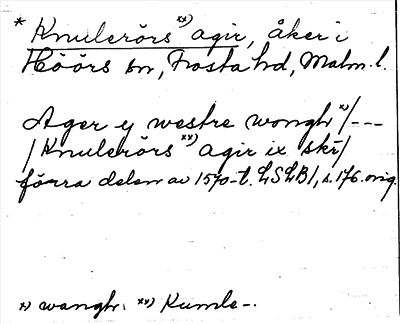 * Knulerörs xx) agir, åker i
Höörs sn, Frosta hd, Malm. l.
Ager ej westre wongh x)/---
/Knulerörs xx) agir ix skr/
förra delen av 1570-t. LSLB1, s. 176. orig.
x) wangh. xx) Kumle-.